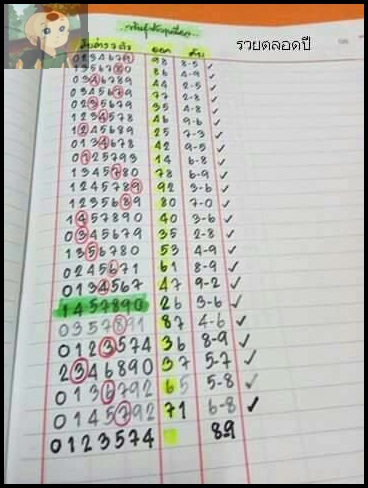 รวยตลอดปี
0234679 98 8-5 ✓
1356780 86 4-9 ✓
0346789 44 2-5 ✓
0345679 77 2-8 ✓
0235679 35 4-8 ✓
1234578 46 9-6 ✓
1245689 25 7-3 ✓
0134678 42 9-5 ✓
0125793 14 6-8 ✓
1345780 78 6-9 ✓
1245789 92 3-6 ✓
1235689 80 7-0 ✓
1457890 40 3-6 ✓
0345679 35 2-8 ✓
1356780 53 4-9 ✓
0245671 61 8-9 ✓
0134567 47 9-2 ✓
1457890 26 3-6 ✓
0357891 87 4-6 ✓
0123574 36 8-9 ✓
2346890 37 5-7 ✓
0136792 65 5-8 ✓
0145792 71 6-8 ✓
0123574 89